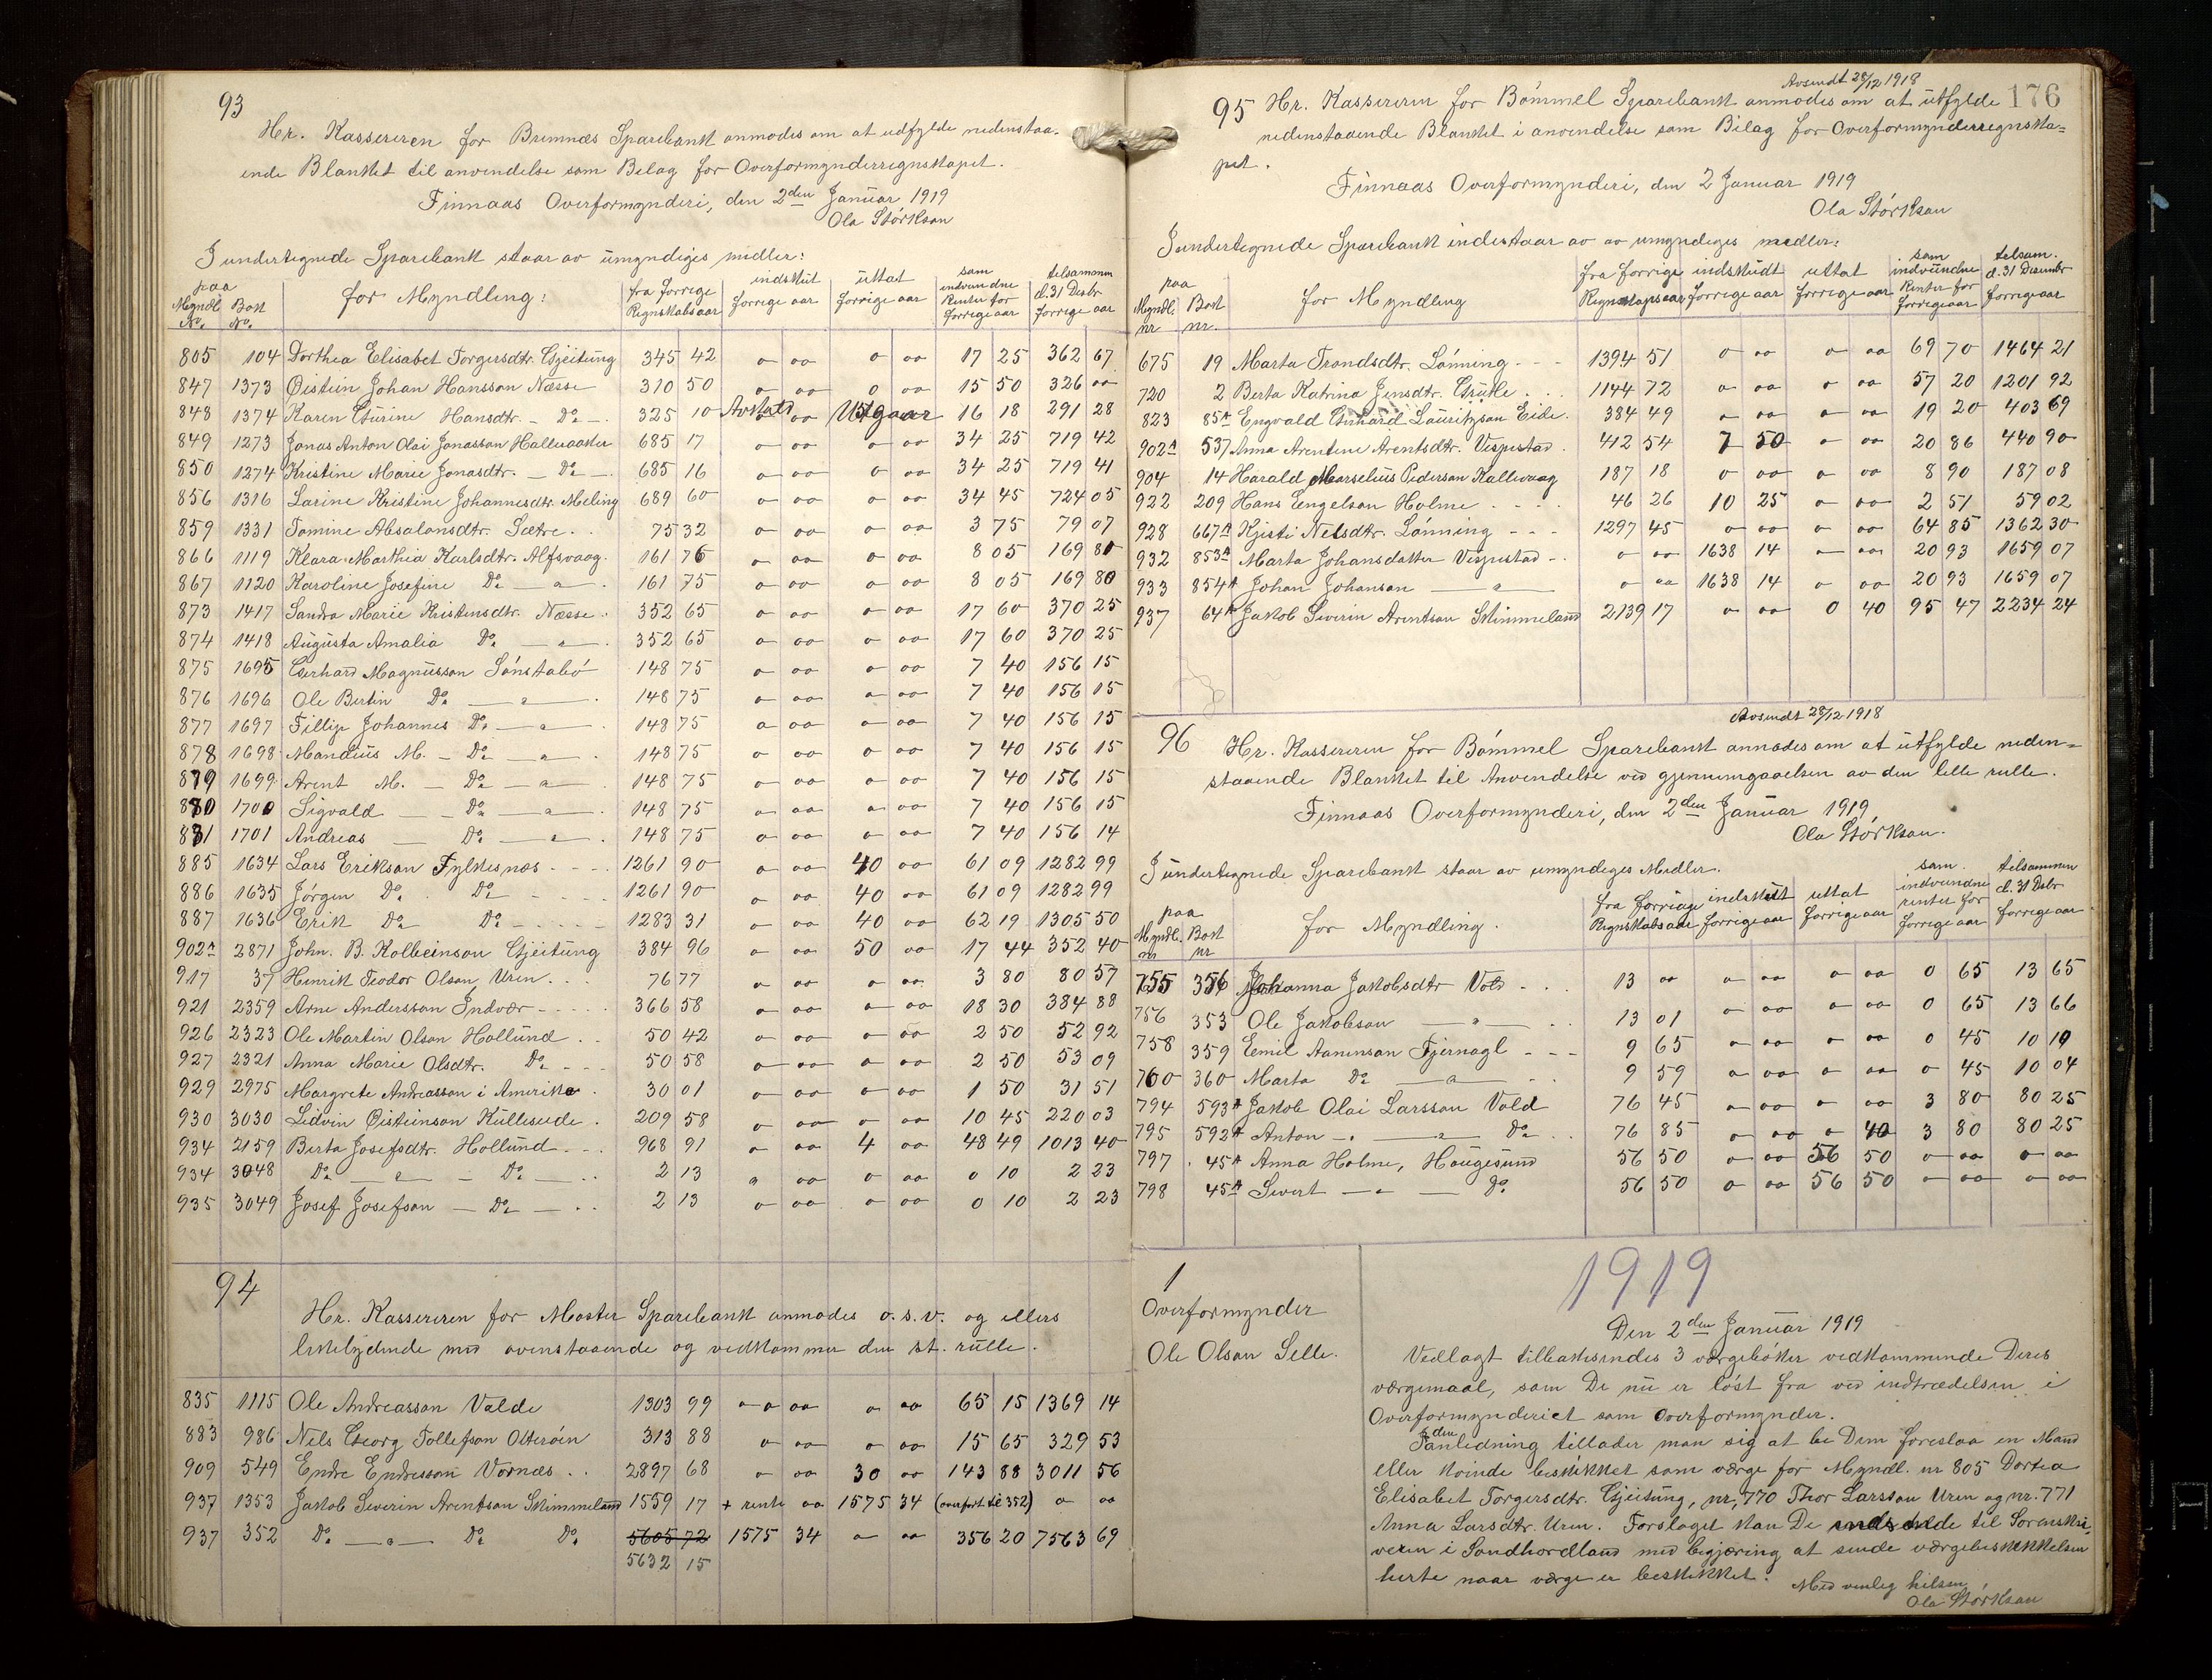 93
Hr. Kassereren for Bremnæs Sparebank anmodes om at udfylde nedenstaa-
ende Blanket til anvendelse som Bilag for Overformynderregnskapet.
Finnaas Overformynderi, den 2den Januar 1919
Ola Størkson
I undertegnede Sparebank staar av umyndiges midler:
paa Myndl. No. Bok No. for Myndling: fra forrige Regnskabsaar indskut forrige aar uttat forrige aar sam indvundne Renter for forrige aar tilsammen d. 31 Desbr forrige aar
805 104 Dorthea Elisabet Torgersdtr. Gjeitung 345 42 0 00 0 00 17 25 362 67
847 1373 Øistein Johan Hansson Næsse 310 50 0 00 0 00 15 50 326 00
848 1374 Karen Gurine Hansdtr. - Do - 325 10 16 18 291 28
849 1273 Jonas Anton Olai Jonasson Hallaraaker 685 17 0 00 0 00 34 25 719 42
850 1274 Kristine Marie Jonasdtr. - Do - 685 16 0 00 0 00 34 25 719 41
856 1316 Larine Kristine Johannesdtr. Meling 689 60 0 00 0 00 34 45 724 05
859 1331 Tomine Absalonsdtr. Sætre 75 32 0 00 0 00 3 75 79 07
866 1119 Klara Marthia Karlsdtr. Alfsvaag 161 76 0 00 0 00 8 05 169 81
867 1120 Karoline Josefine Do 161 75 0 00 0 00 8 05 169 80
873 1417 Sandra Marie Kristensdtr. Næsse 352 65 0 00 0 00 17 60 370 25
874 1418 Augusta Amalia Do 352 65 0 00 0 00 17 60 370 25
875 1695 Gerhard Magnusson Sønstabø 148 75 0 00 0 00 7 40 156 15
876 1696 Ole Bertin Do 148 75 0 00 0 00 7 40 156 15
877 1697 Fillip Johannes Do 148 75 0 00 0 00 7 40 156 15
878 1698 Mandius M. - Do 148 75 0 00 0 00 7 40 156 15
879 1699 Arent M. - Do 148 75 0 00 0 00 7 40 156 15
880 1700 Sigvald - Do 148 75 0 00 0 00 7 40 156 15
881 1701 Andreas - Do 148 75 0 00 0 00 7 40 156 14
885 1634 Lars Erikson Fylkesnæs 1261 90 0 00 40 00 61 09 1282 99
886 1635 Jørgen Do Do 1261 90 0 00 40 00 61 09 1282 99
887 1636 Erik Do Do 1283 31 0 00 40 00 62 19 1305 50
902a 2871 John. B. Kolbeinson Gjeitung 384 96 0 00 50 00 17 44 352 40
917 37 Henrik Teodor Olson Uren 76 77 0 00 0 00 3 80 80 57
921 2359 Arne Andersson Indvær 366 58 0 00 0 00 18 30 384 88
926 2323 Ole Martin Olson Hollund 50 42 0 00 0 00 2 50 52 92
927 2321 Anna Marie Olsdtr. Do 50 58 0 00 0 00 2 50 53 09
929 2975 Margrete Andreasson i Amerika 30 01 0 00 0 00 1 50 31 51
930 3030 Lidvin Øisteinson Kulleseide 209 58 0 00 0 00 10 45 220 03
934 2159 Berta Josefsdtr. Hollund 968 91 0 00 4 00 48 49 1013 40
934 3048 Do - Do 2 13 0 00 0 00 0 10 2 23
935 3049 Josef Josefson - Do - 2 13 0 00 0 00 0 10 2 23
94
Hr. Kassereren for Moster Sparebank anmodes o.s.v. og ellers
likelydende med ovenstaaende og vedkommer den st. rulle.
835 1115 Ole Andreasson Valde 1303 99 0 00 0 00 65 15 1369 14
883 986 Nels Georg Tollefson Otterøen 313 88 0 00 0 00 15 65 329 53
909 549 Endre Endresson Vornæs 2897 68 0 00 30 00 143 88 3011 56
937 1353 Jakob Severin Arentson Skimmeland 1559 17 + rente 00 1575 34 (overført til 352) 0 00
937 352 Do Do Do 5605 72 1575 34 0 00 356 20 7563 69
5632 15
Avsendt 28/12 1918
176
95 Hr. Kassereren for Bømmel Sparebank anmodes om at utfylde
nedenstaaende Blanket i anvendelse som Bilag for Overformynderregnska-
pet.
Finnaas Overformynderi, den 2 Januar 1919
Ola Størkson
I undertegnede Sparebank indestaar av av umyndiges medler:
paa Myndl. nr Bok nr. for Myndling fra forrige Regnskapsaar indskudt forrige aar uttat forrige aar sam indvundne Renter for forrige aar tilsam. d. 31 Desember forrige aar
675 19 Marta Trondsdtr. Lønning 1394 51 0 00 0 00 69 70 1464 21
720 2 Berta Katrina Jensdtr. Grutle 1144 72 0 00 0 00 57 20 1201 92
823 85A Engvald Gerhard Lauritzson Eide 384 49 0 00 0 00 19 20 403 69
902a 537 Anna Arentine Arentsdtr. Vespestad 412 54 7 50 0 00 20 86 440 90
904 14 Harald Marselius Pederson Kallevaag 187 18 0 00 0 00 8 90 187 08
922 209 Hans Engelson Holme 46 26 10 25 0 00 2 51 59 02
928 667A Kjisti Nelsdtr. Lønning 1297 45 0 00 0 00 64 85 1362 30
932 853A Marta Johansdatter Vespestad 0 00 1638 14 0 00 20 93 1659 07
933 854A Johan Johanson 0 00 1638 14 0 00 20 93 1659 07
937 64A Jakob Severin Arentson Skimmeland 2139 17 0 00 0 40 95 47 2234 24
Avsendt 28/12 1918
96 Hr. Kassereren for Bømmel Sparebank anmodes om at utfylde neden-
staaende Blanket til Anvendelse ved gjennemgaaelsen av den lille rulle.
Finnaas Overformynderi, den 2den Januar 1919
Ola Størkson.
I undertegnede Sparebank staar av umyndiges Medler.
paa Myndl. nr Bok nr for Myndling. fra forrige Regnskabsaar indskutt forrige aar uttat forrige aar sam indvundne renter for forrige aar tilsammen d. 31 Desbr forrige aar
755 356 Johanna Jakobsdtr Vold 13 00 0 00 0 00 0 65 13 65
756 353 Ole Jakobson 13 01 0 00 0 00 0 65 13 66
758 359 Emil Aanenson Fjernagl 9 65 0 00 0 00 0 45 10 10
760 360 Marta Do 9 59 0 00 0 00 0 45 10 04
794 593A Jakob Olai Larsson Vold 76 45 0 00 0 00 3 80 80 25
795 592A Anton Do 76 85 0 00 0 40 3 80 80 25
797 45A Anna Holme, Haugesund 56 50 0 00 56 50 0 00 0 00
798 45A Sivert Do 56 50 0 00 56 50 0 00 0 00
1
Overformynder
Ole Olson Selle.
1919
Den 2den Januar 1919
Vedlagt tilbakesendes 3 værgebøker vedkommende Deres
værgemaal, som De nu er løst fra ved indtrædelsen i
Overformynderiet som Overformynder.
I den anledning tillader man sig at be Dem foreslaa en Mand
eller kvinde beskikket som værge for Myndl. nr 805 Dortea
Elisabet Torgersdtr. Gjeitung, nr, 770 Thor Larsson Uren og nr. 771
Anna Larsdtr. Uren. Forslaget kan De indsende til Sorenskri-
veren i Søndhordland med begjæring at sende værgebeskikkelsen
herte naar værge er beskikket.
Med venlig hilsen
Ola Størkson